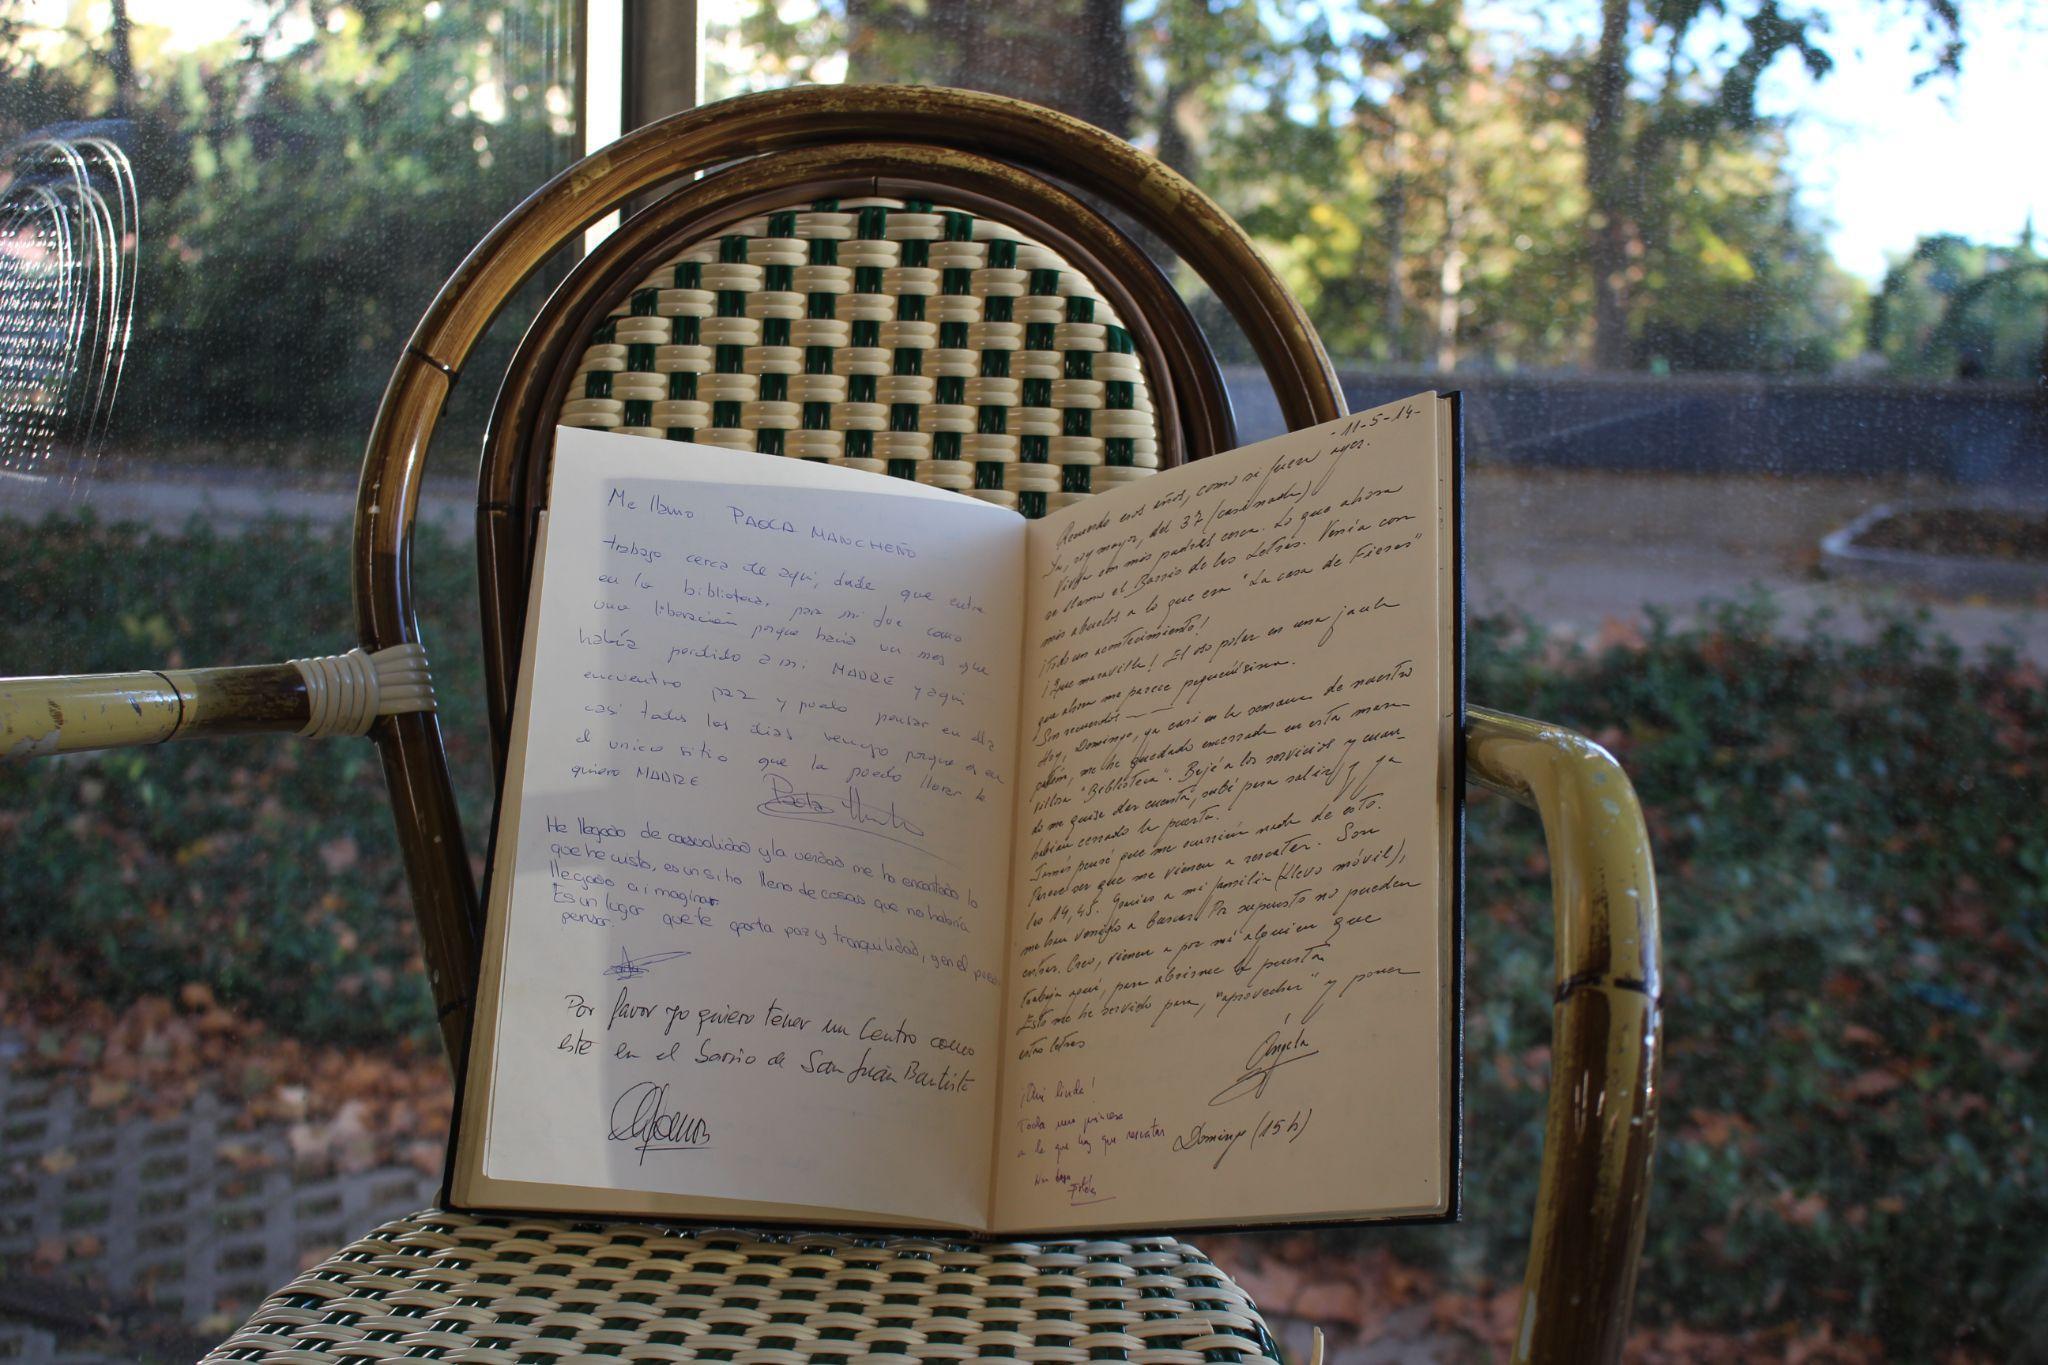 Me llamo PAOLA MANCHEÑO
trabajo cerca de aqui, desde que entre
en la biblioteca, para mi fue como
una liberación porque hacia un mes que
había perdido a mi MADRE y aqui
encuentro paz y puedo pensar en ella
casi todos los dias vengo porque es en
el unico sitio que la puedo llorar te
quiero MADRE
He llegado de casualidad y la verdad me ha encantado lo
que he visto, es un sitio lleno de cosas que no habría
llegado a imaginar
Es un lugar que te aporta paz y tranquilidad, y en el puedes
pensar.
Por favor yo quiero tener un Centro como
este en el barrio de San Juan Bautista
- 11-5-14-
Recuerdo esos años, como si fuera ayer.
Ya, soy mayor, del 37 (casi nada)
Vivía con mis padres cerca. Lo que ahora
se llama el Barrio de las Letras. Venía con
mis abuelos a lo que era "La casa de Fieras"
¡Todo un acontecimiento!
¡Que maravilla! El oso polar en una jaula
que ahora me parece pequeñísima.
Son recuerdos
Hoy, Domingo, ya casi en la semana de nuestro
patrón, me he quedado encerrada en esta mara-
villosa "Biblioteca". Bajé a los servicios y cuan-
do me quise dar cuenta, subí para salir y ya
habían cerrado la puerta.
Jamás pensé que me ocurriría nada de esto.
Parece ser que me vienen a rescatar. Son
las 14,45. Gracias a mi familia (llevo móvil),
me han venido a buscar. Por supuesto no pueden
entrar. Creo, vienen a por mí alguien que
trabaja aquí, para abrirme la puerta
Esto me ha servido para, "aprovechar" y poner
estas letras
Ángela
Domingo (15 h)
¡Qué linda!
Toda una princesa
a la que hay que rescatar